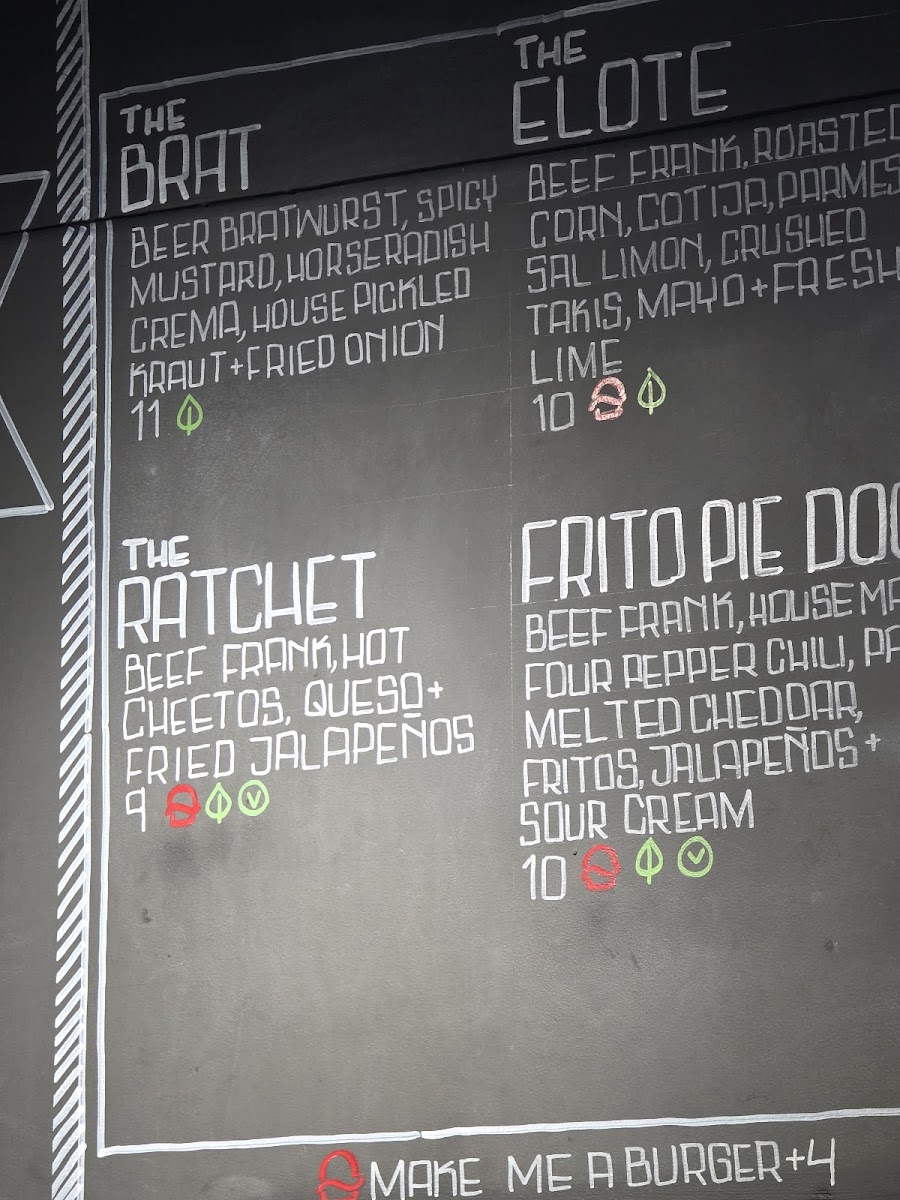 THE
BRAT
BEER BRATWURST, SPICY
MUSTARD, HORSERADISH
CREMA, HOUSE PICKLED
KRAUT+FRIED ONION
11
THE
ELOTE
BEEF FRANK, ROASTED
CORN, COTIJA, PARMES
SAL LIMON, CRUSHED
TAKIS, MAYO+FRESH
LIME
10
THE
RATCHET
BEEF FRANK, HOT
CHEETOS, QUESO+
FRIED JALAPEÑOS
9 V
FRITO PIE DOG
BEEF FRANK, HOUSE MA
FOUR PEPPER CHILI, PA
MELTED CHEDDAR,
FRITOS, JALAPEÑOS+
SOUR CREAM
10 V
MAKE ME A BURGER+4